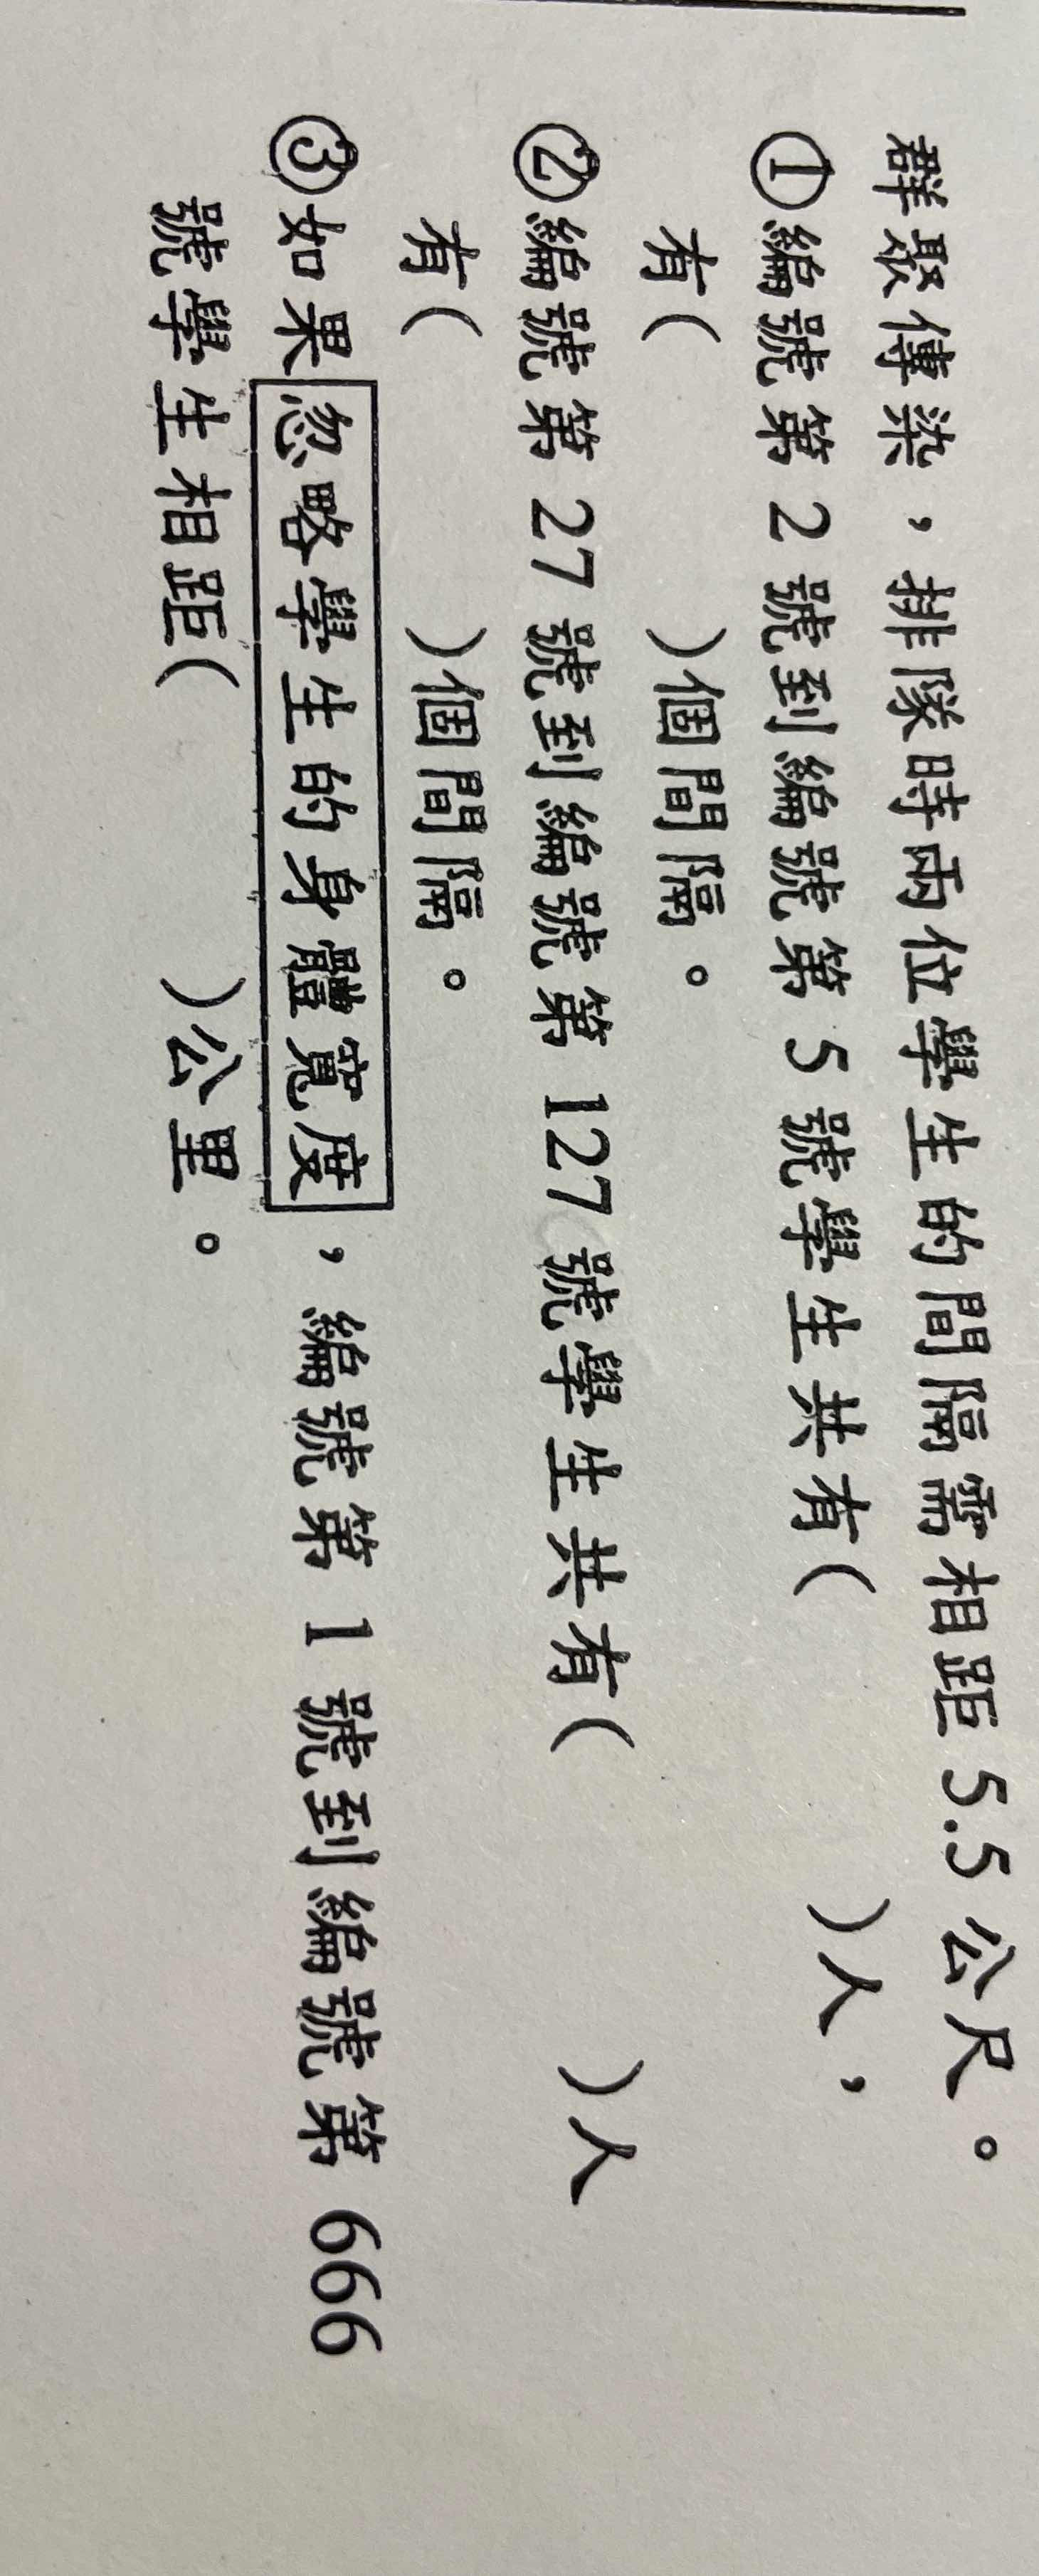 群聚傳染，排隊時兩位學生的間隔需相距 5.5 公尺。
①編號第 2 號到編號第 5 號學生共有(　　)人，
有(　　)個間隔。
②編號第 27 號到編號第 127 號學生共有(　　)人
有(　　)個間隔。
③如果忽略學生的身體寬度，編號第 1 號到編號第 666
號學生相距(　　)公里。